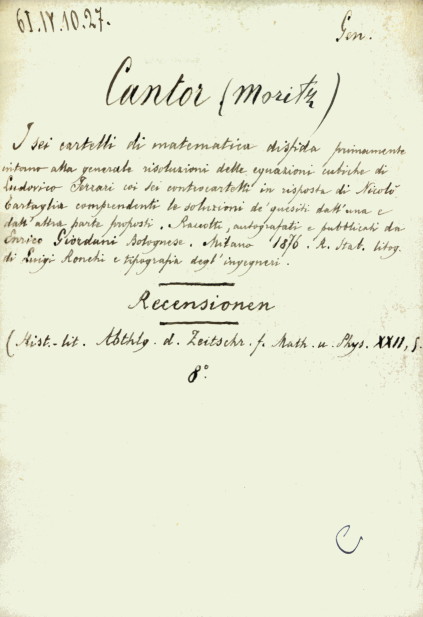 61.IV.10.27.
Gen.
Cantor (Moritz)
I sei cartelli di matematica disfida primamente
intorno alla generale risoluzioni delle equazioni cubiche di
Ludovico Ferrari coi sei controcartelli in risposta di Nicolò
Tartaglia comprendenti le soluzioni de' quesiti dall' una e
dall' altra parte proposti. Raccolti, autografati e pubblicati da
Enrico Giordani Bolognese. Milano 1876. R. Stab. litog.
di Luigi Ronchi e tipografia degl' ingegneri.
Recensionen
(Hist.-lit. Abthlg. d. Zeitschr. f. Math. u. Phys. XXII, 5.
8°.